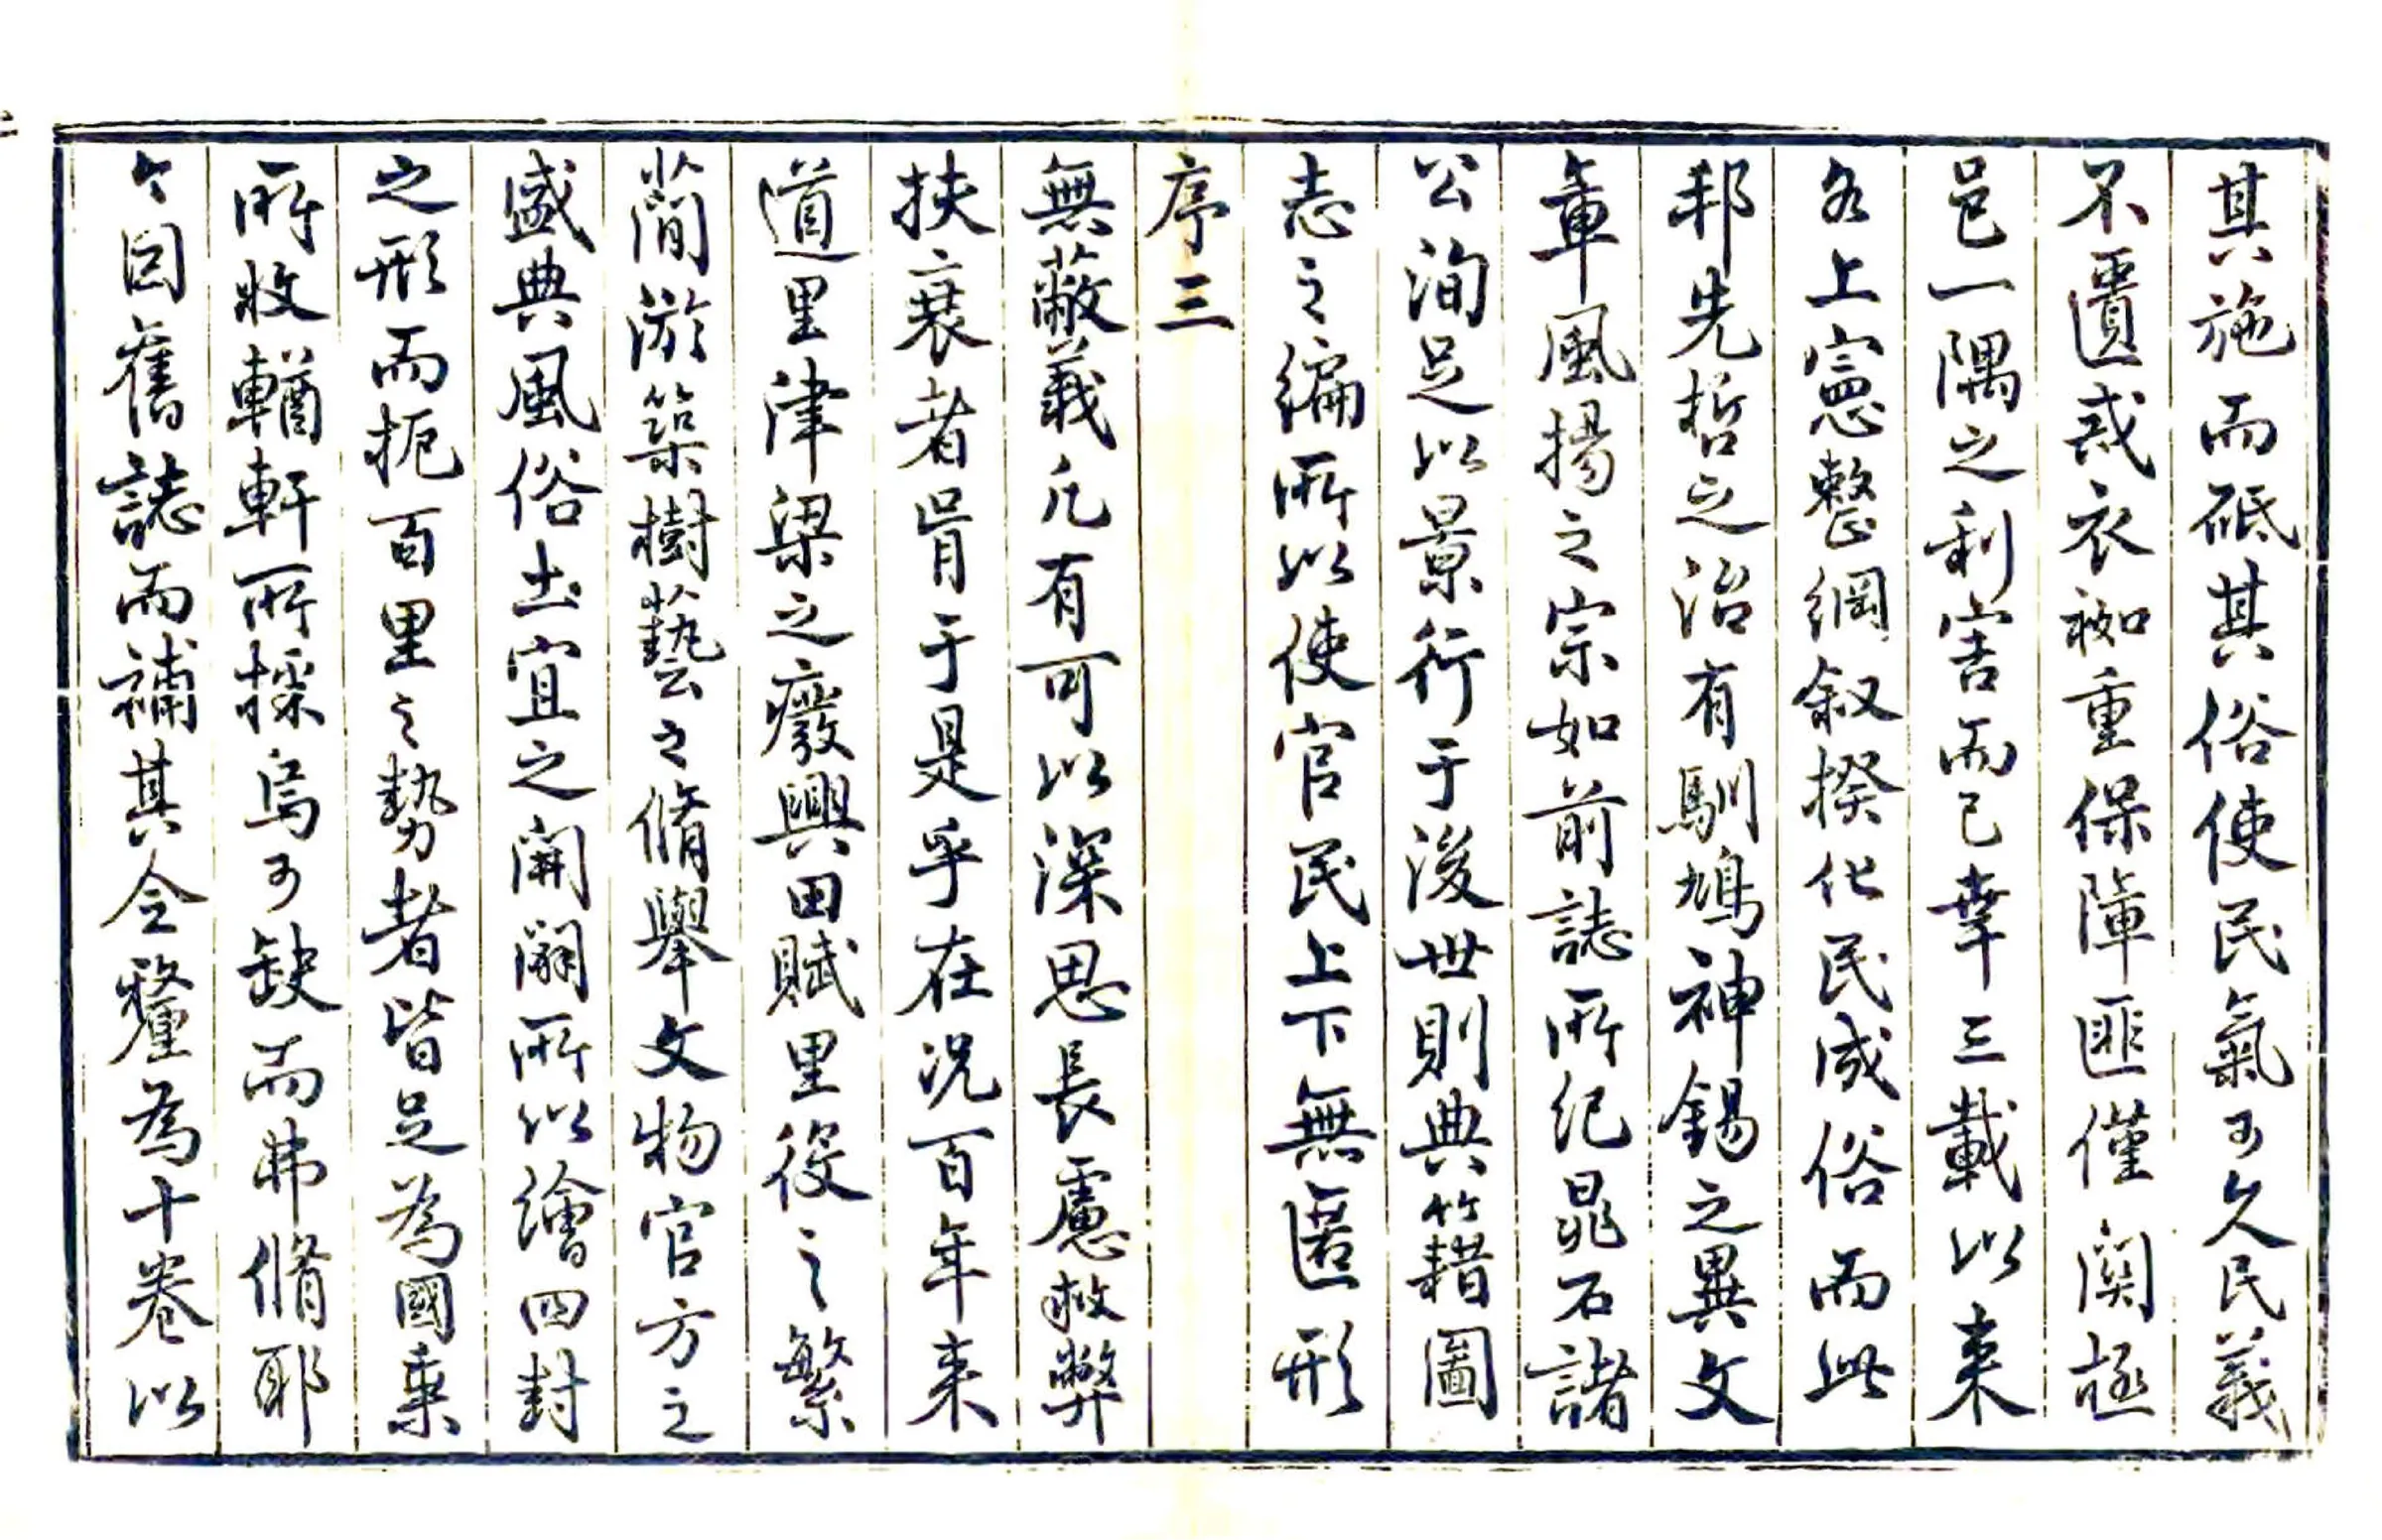 其施而砥其俗使民氣可久民義
不匱惑衣袽重保障匪僅関極
邑一隅之利害而已幸三載以来
名上憲整綱叙揆化民成俗而此
邦先哲之治有馴鳩神錫之異文
章風揚之宗如前誌所紀晁石諸
公洵足以景行于後世則典籍圖
志之編所以使官民上下無匿形
序三
無蔽義凡有可以深思長慮救弊
扶衰者胥于是乎在況百年来
道里津梁之癈興田賦里役之繁
簡游築樹藝之脩舉文物官方之
盛典風俗土宜之開闢所以繪四封
之形而扼百里之勢者皆足為國乗
所收輶軒所採烏可缺而弗脩耶
今因舊誌而補其今釐為十卷以